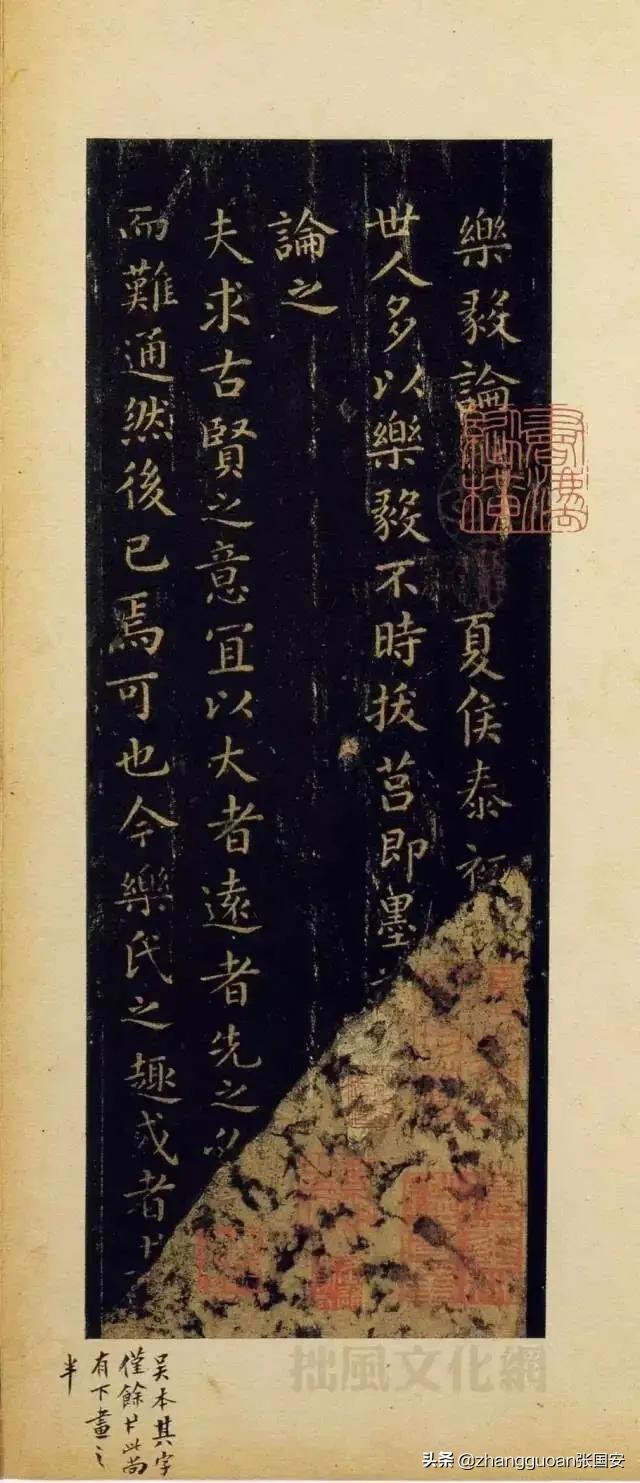 樂毅論 夏侯泰初
世人多以樂毅不時拔莒即墨
論之
夫求古賢之意宜以大者遠者先之
而難通然後已焉可也今樂氏之趣或者
吴本其字
僅餘此尚
有下畫之
半
拙風文化網
头条 @zhangguoan张国安